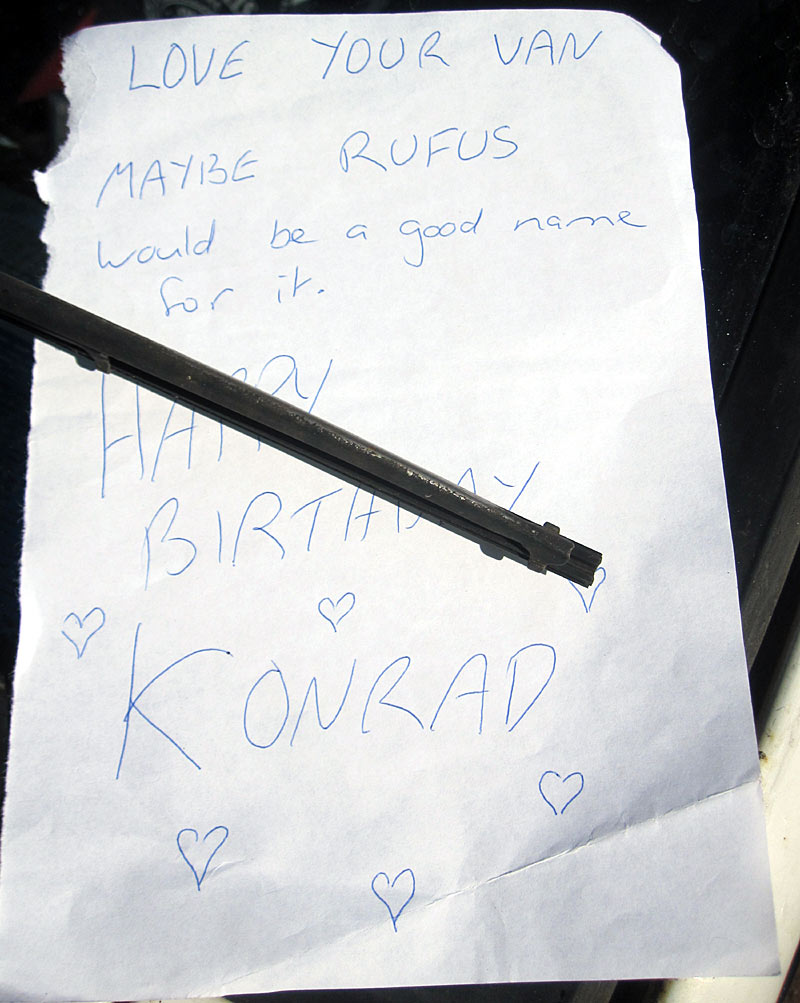 LOVE YOUR VAN
MAYBE RUFUS
would be a good name
for it.
HAPPY
BIRTHDAY
KONRAD